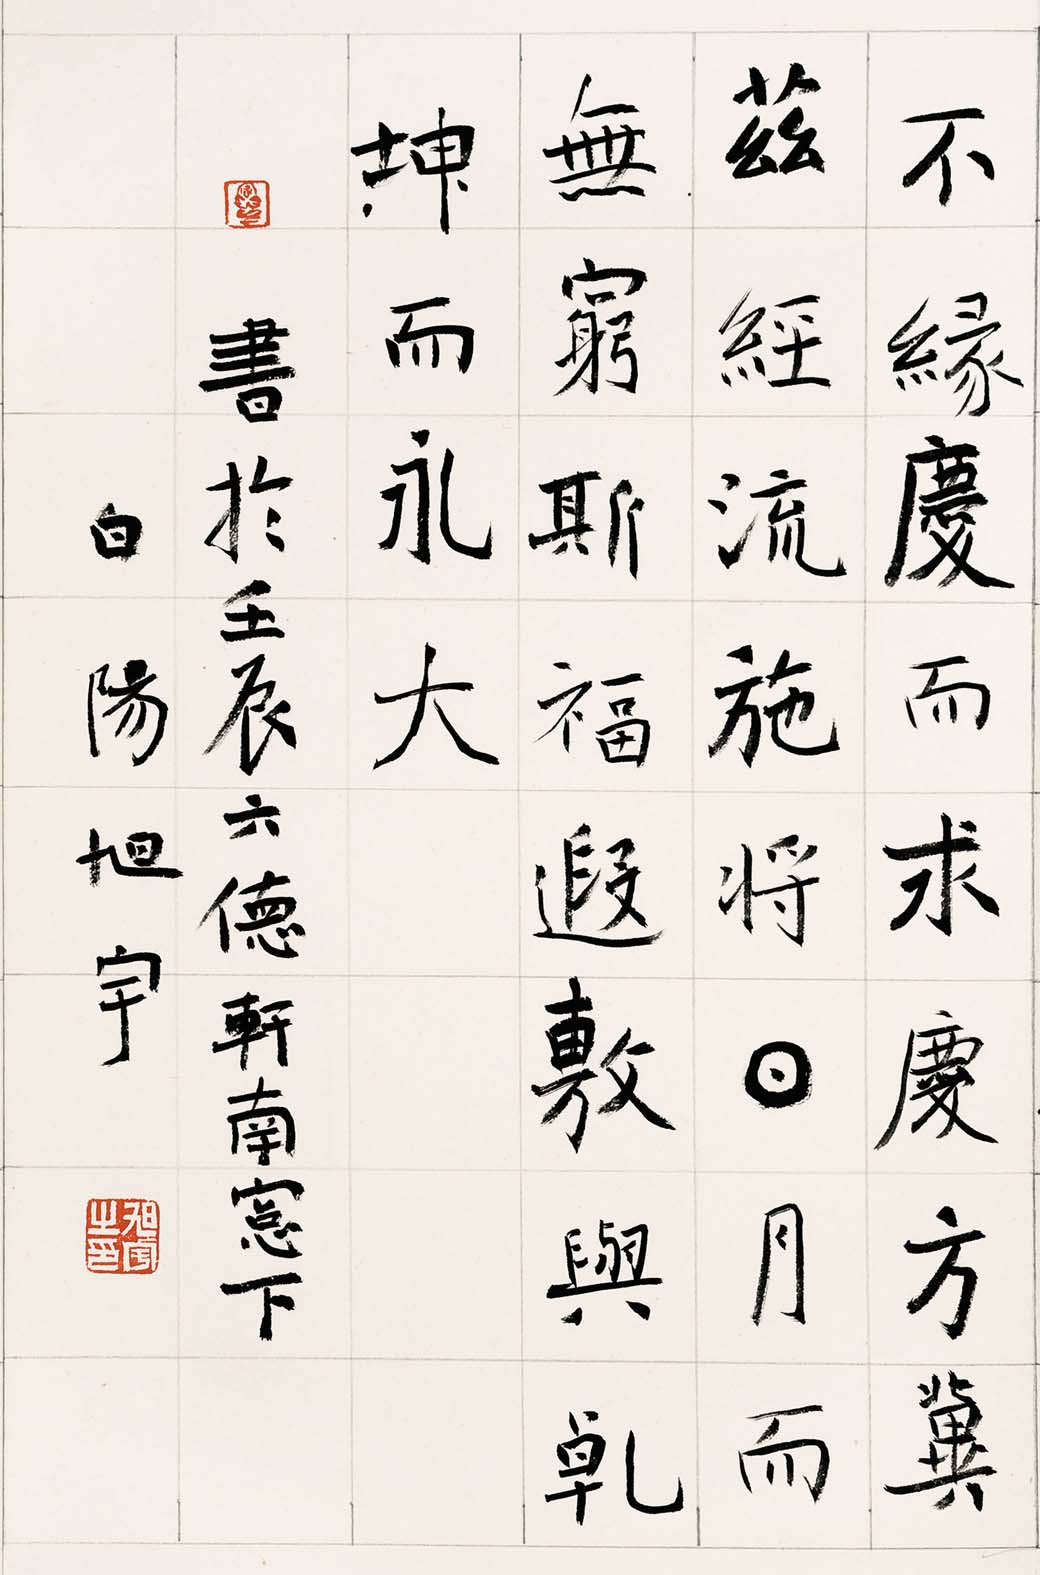 不緣慶而求慶方冀
茲經流施将日月而
無窮斯福遐敷與乹
坤而永大
書於壬辰六德軒南窓下
白陽旭宇
旭宇之印